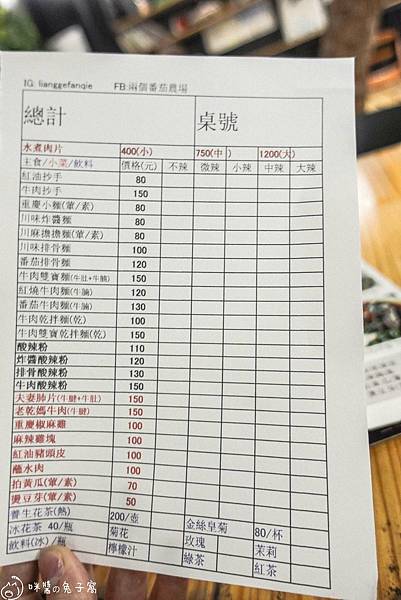 IG: lianggefanqie FB:兩個番茄農場
總計 桌號
水煮肉片 400(小) 750(中 ) 1200(大)
主食/小菜/飲料 價格(元) 不辣 微辣 小辣 中辣 大辣
紅油抄手 80
牛肉抄手 150
重慶小麵(葷/素) 80
川味炸醬麵 80
川麻擔擔麵(葷/素) 80
川味排骨麵 100
番茄排骨麵 120
牛肉雙寶麵(牛肚+牛腩) 150
紅燒牛肉麵(牛腩) 120
番茄牛肉麵(牛腩) 130
牛肉乾拌麵(乾) 100
牛肉雙寶乾拌麵(乾) 150
酸辣粉 110
炸醬酸辣粉 120
排骨酸辣粉 130
牛肉酸辣粉 150
夫妻肺片(牛腱+牛肚) 150
老乾媽牛肉(牛腱) 150
重慶椒麻雞 100
麻辣雞塊 100
紅油豬頭皮 100
蘸水肉 100
拍黃瓜(葷/素) 70
燙豆芽(葷/素) 50
養生花茶(熱) 200/壺 金絲皇菊 80/杯
冰花茶 40/瓶 菊花 玫瑰 茉莉
飲料(冰)/瓶 檸檬汁 綠茶 紅茶
咪醬の兔子窩